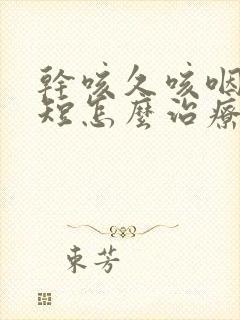 幹咳久咳咽
短怎麼治療
東芳